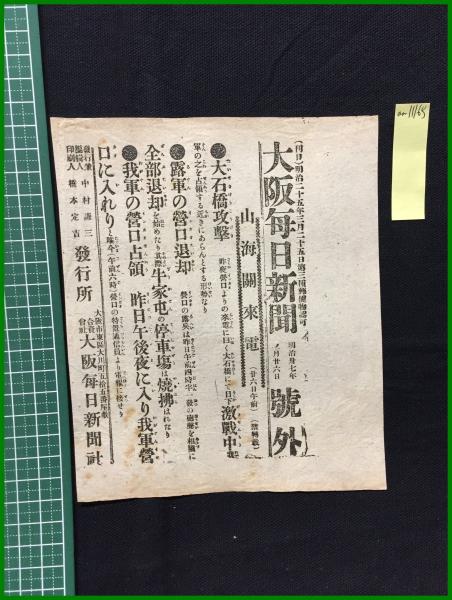 (日刊)明治二十五年三月二十五日第三種郵便物認可
大阪毎日新聞 號外
明治卅七年
月廿六日
山海關來電 (廿六日午前)(禁轉載)
●大石橋攻擊 昨夜營口よりの來電に曰く大石橋にて目下激戰中我
軍の之を占領する近きにあらんとする形勢なり
●露軍の營口退却 營口の露兵は昨日午前四時半一發の砲聲を相圖に
全部退却を始めたり其際牛家屯の停車塲は燒拂はれたり
●我軍の營口占領 昨日午後夜に入り我軍營
口に入れりと昨今午前六時營口の特置通信員より電報に接せり
發行兼編輯人 中村謙三
印刷人 橋本定吉
發行所
大阪市東區大川町五拾五番屋敷
合資會社 大阪毎日新聞社